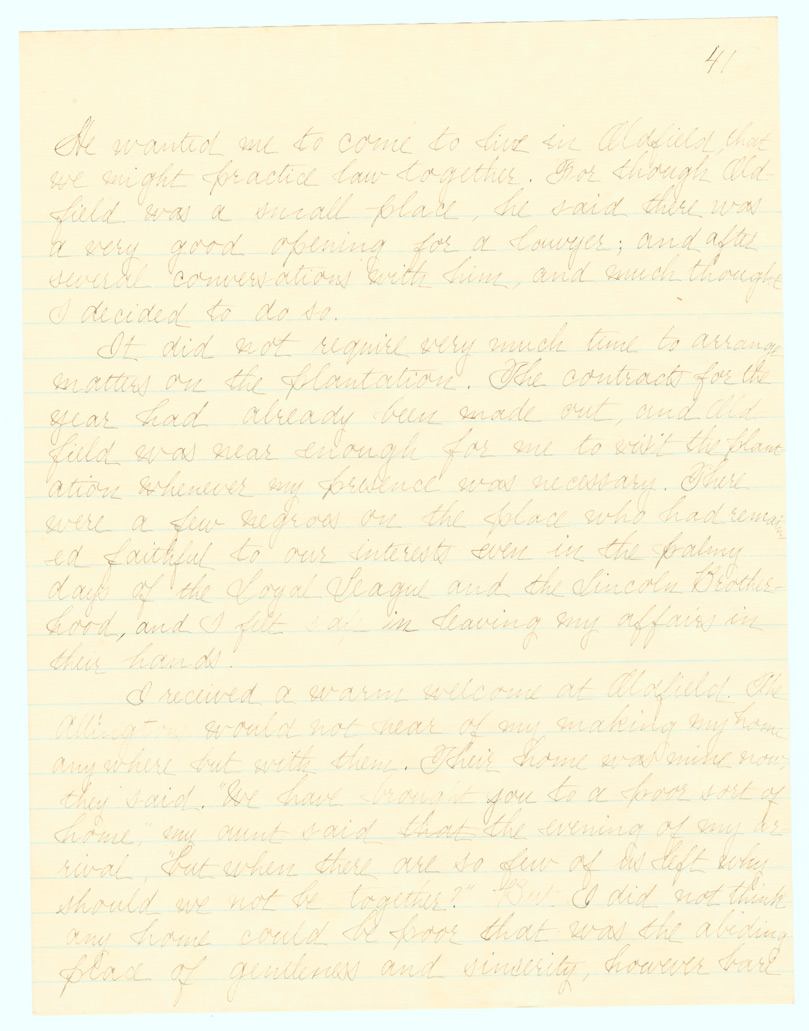 41
He wanted me to come to live in Oldfield, that
we might practice law together. For though Old-
field was a small place, he said there was
a very good opening for a lawyer; and after
several conversations with him, and much thought
I decided to do so.
It did not require very much time to arrange
matters on the plantation. The contracts for the
year had already been made out, and Old
field was near enough for me to visit the plant-
ation whenever my presence was necessary. There
were a few negroes on the place who had remain-
ed faithful to our interests even in the palmy
days of the Loyal League and the Lincoln Brother-
hood, and I felt safe in leaving my affairs in
their hands.
I received a warm welcome at Oldfield. The
Allingtons would not hear of my making my home
anywhere but with them. Their home was mine now,
they said. "We have brought you to a poor sort of
home," my aunt said that the evening of my ar
rival, "but when there are so few of us left why
should we not be together?" But I did not think
any home could be poor that was the abiding
place of gentleness and sincerity, however bare